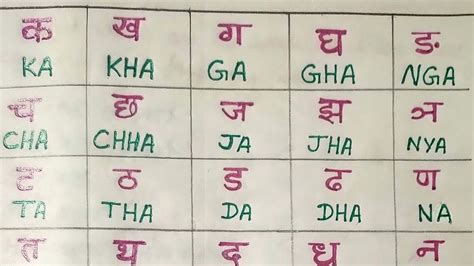 क ख ग घ ङ
KA KHA GA GHA NGA
च छ ज झ ञ
CHA CHHA JA JHA NYA
ट ठ ड ढ ण
TA THA DA DHA NA
त थ द ध न